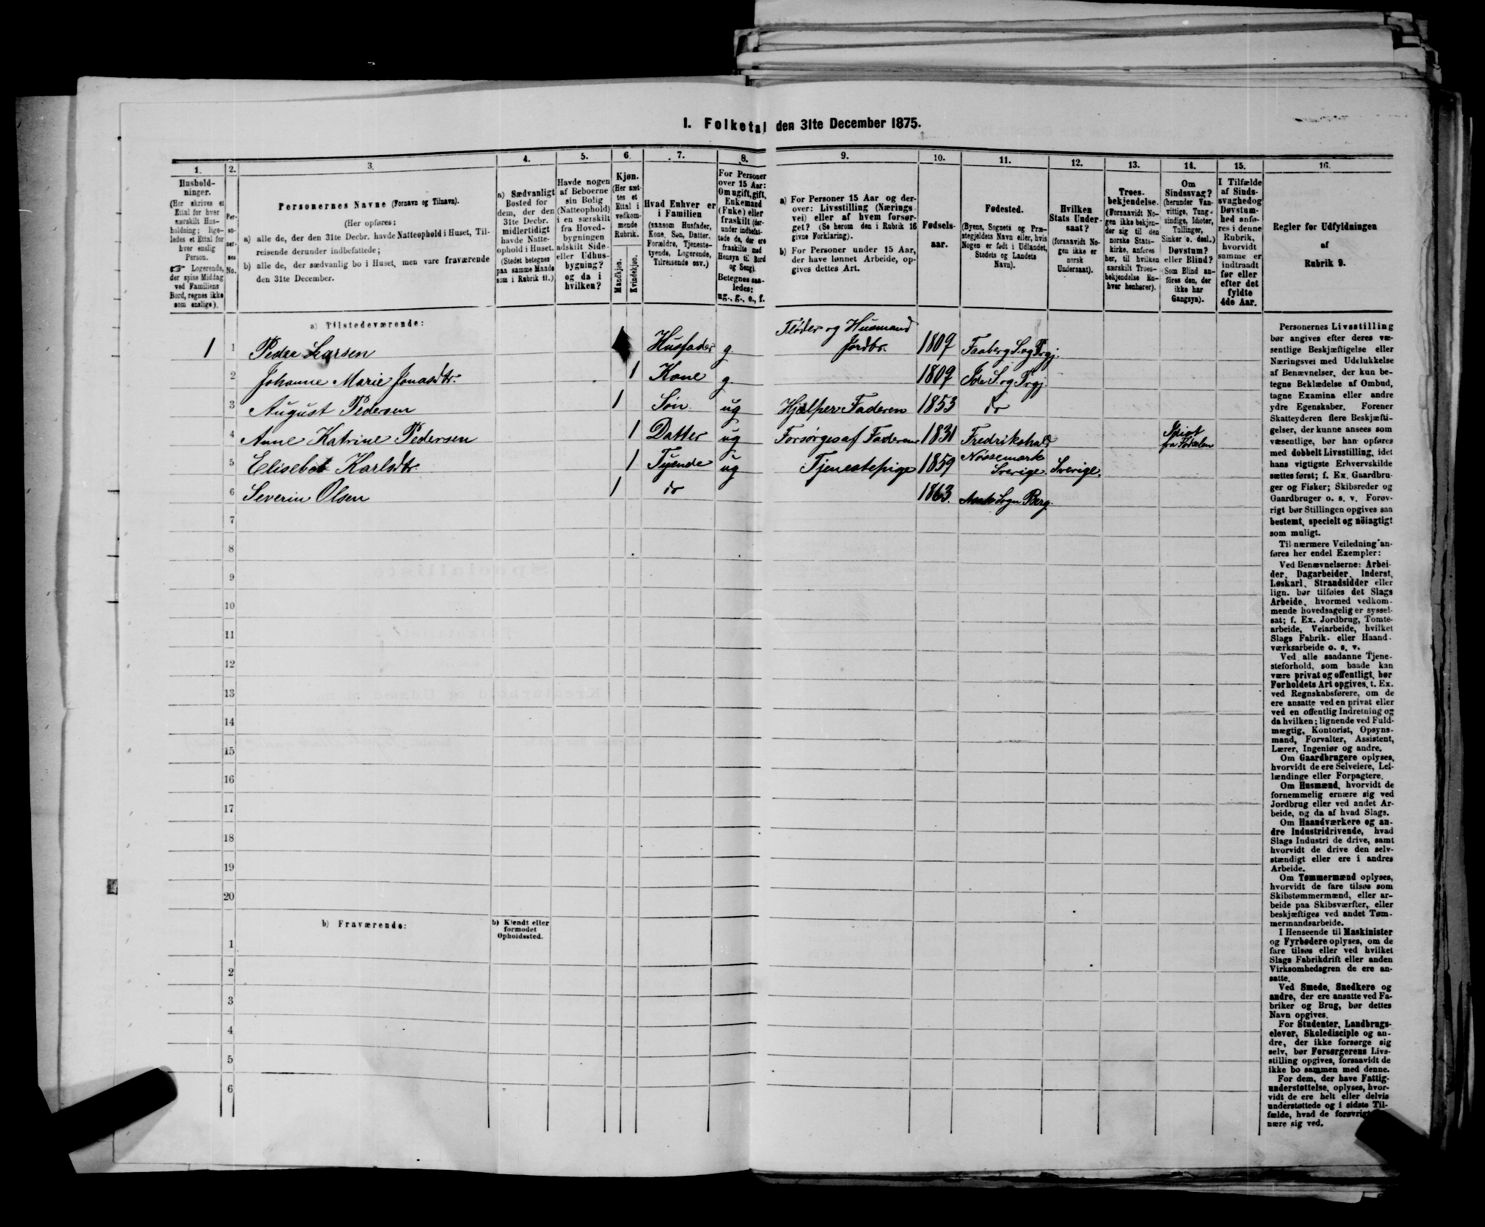 I. Folketal den 31te December 1875.
1. 2. 3. 4. 5. 6. 7. 8. 9. 10. 11. 12. 13. 14. 15. 16.
Hushold-
ninger.
(Her skrives et
Ettal for hver
særskilt Hus-
holdning; lige-
ledes et Ettal for
hver enslig
Person.
☞ Logerende,
der spise Middag
ved Familiens
Bord, regnes ikke
som enslige).
Per-
soner-
nes
No.
Personernes Navne (Fornavn og Tilnavn).
(Her opføres:
a) alle de, der den 31te Decbr. havde Natteophold i Huset, Til-
reisende derunder indbefattede;
b) alle de, der sædvanlig bo i Huset, men vare fraværende
den 31te December.
a) Sædvanligt
Bosted for
dem, der den
31te Decbr.
midlertidigt
havde Natte-
ophold i Huset.
(Stedet betegnes
paa samme Maade
som i Rubrik 11.)
Havde nogen
af Beboerne
sin Bolig
(Natteophold)
i en særskilt
fra Hoved-
bygningen
adskilt Side-
eller Udhus-
bygning?
og da i
hvilken?
Kjøn.
(Her sæt-
tes et
Ettal i
vedkom-
mende
Rubrik.
Mandkjøn.
Kvindekjøn.
Hvad Enhver er
i Familien
(saasom Husfader,
Kone, Søn, Datter,
Forældre, Tjeneste-
tyende, Logerende,
Tilreisende osv.)
For Personer
over 15 Aar:
Om ugift, gift,
Enkemand
(Enke) eller
fraskilt (der-
under indbefat-
tede de, der ere
fraskilte med
Hensyn til Bord
og Seng)
Betegnes saa-
ledes:
ug., g., e., f.
a) For Personer 15 Aar og der-
over: Livsstilling (Nærings-
vei) eller af hvem forsør-
get? (Se herom den i Rubrik 16
givne Forklaring).
b) For Personer under 15 Aar,
der have lønnet Arbeide, op-
gives dettes Art.
Fødsels-
aar.
Fødested.
(Byens, Sognets og Præ-
stegjeldets Navn eller, hvis
Nogen er født i Udlandet,
Stedets og Landets
Navn).
Hvilken
Stats Under-
saat?
(forsaavidt No-
gen ikke er
norsk
Undersaat).
Troes-
bekjendelse.
(Forsaavidt No-
gen ikke bekjen-
der sig til den
norske Stats-
kirke, anføres
her, til hvilken
særskilt Troes-
bekjendelse En-
hver henhører).
Om
Sindssvag?
(herunder Van-
vittige, Tung-
sindige, Idioter,
Tullinger,
Sinker o. desl.)
Døvstum?
eller Blind?
(Som Blind an-
føres den, der
ikke har
Gangsyn).
I Tilfælde
af Sinds-
svaghed og
Døvstum-
hed anfø-
res i denne
Rubrik,
hvorvidt
samme er
indtraadt
før eller
efter det
fyldte
4de Aar.
Regler for Udfyldningen
af
Rubrik 9.
a) Tilstedeværende:
1 1 Peder Larsen Husfader g Fløder og Husmand
Jordbr. 1809 Faaberg S og Prgj.
2 Johanne Marie Jonasdtr. 1 Kone g. 1809 Ide S og Prgj
3 August Pedersen 1 Søn ug Hjælper Faderen 1853 do
4 Anne Katrine Pedersen 1 Datter ug Forsørges af Faderen 1831 Fredrikshald Idiot
fra Fødselen
5 Elisebet Karlsdtr. 1 Tyende ug Tjenestepige 1859 Nössemark
Sverige Sverige.
6 Severin Olsen 1 do 1863. Asak Sogn Berg.
7
8
9
10
11
12
13
14
15
16
17
18
19
20
b) Fraværende:
b) Kjendt eller
formodet
Opholdssted.
1
2
3
4
5
6
Personernes Livsstilling
bør angives efter deres væ-
sentlige Beskjæftigelse eller
Næringsvei med Udelukkelse
af Benævnelser, der kun be-
tegne Beklædelse af Ombud,
tagne Examina eller andre
ydre Egenskaber. Forener
Skatteyderen flere Beskjæfti-
gelser, der kunne ansees som
væsentlige, bør han opføres
med dobbelt Livsstilling, idet
hans vigtigste Erhvervskilde
sættes først; f. Ex. Gaardbru-
ger og Fisker; Skibsreder og
Gaardbruger o. s. v. Forøv-
rigt bør Stillingen opgives saa
bestemt, specielt og nöiagtigt
som muligt.
Til nærmere Veiledning an-
føres her endel Exempler:
Ved Benævnelserne: Arbei-
der, Dagarbeider, Inderst,
Løskarl, Strandsidder eller
lign. bør tilføies det Slags
Arbeide, hvormed vedkom-
mende hovedsagelig er syssel-
sat; f. Ex. Jordbrug, Tomte-
arbeide, Veiarbeide, hvilket
Slags Fabrik- eller Haand-
værksarbeide o. s. v.
Ved alle saadanne Tjene-
steforhold, som baade kan
være privat og offentligt, bør
Forholdets Art opgives, t. Ex.
ved Regnskabsførere, om de
ere ansatte ved en privat eller
ved en offentlig Indretning og
da hvilken; lignende ved Fuld-
mægtig, Kontorist, Opsyns-
mand, Forvalter, Assistent,
Lærer, Ingeniør og andre.
Om Gaardbrugere oplyses,
hvorvidt de ere Selveiere, Lei-
lændinge eller Forpagtere.
Om Husmænd, hvorvidt de
fornemmelig ernære sig ved
Jordbrug eller ved andet Ar-
beide, og da af hvad Slags.
Om Haandværkere og an-
dre Industridrivende, hvad
Slags Industri de drive, samt
hvorvidt de drive den selv-
stændigt eller ere i andres
Arbeide.
Om Tømmermænd oplyses,
hvorvidt de fare tilsøs som
Skibstømmermænd, eller ar-
beide paa Skibsværfter, eller
beskjæftiges ved andet Tøm-
mermandsarbeide.
I Henseende til Maskinister
og Fyrbødere oplyses, om de
fare tilsøs eller ved hvilket
Slags Fabrikdrift eller anden
Virksomhedsgren de ere an-
satte.
Ved Smede, Snedkere og
andre, der ere ansatte ved Fa-
briker og Brug, bør dettes
Navn opgives.
For Studenter, Landbrugs-
elever, Skoledisciple og an-
dre, der ikke forsørge sig
selv, bør Forsørgerens Livs-
stilling opgives, forsaavidt de
ikke bo sammen med denne.
For dem, der have Fattig-
understøttelse, oplyses, hvor-
vidt de ere helt eller delvis
understøttede og i sidste Til-
fælde, hvad de forøvrigt
nære sig ved.